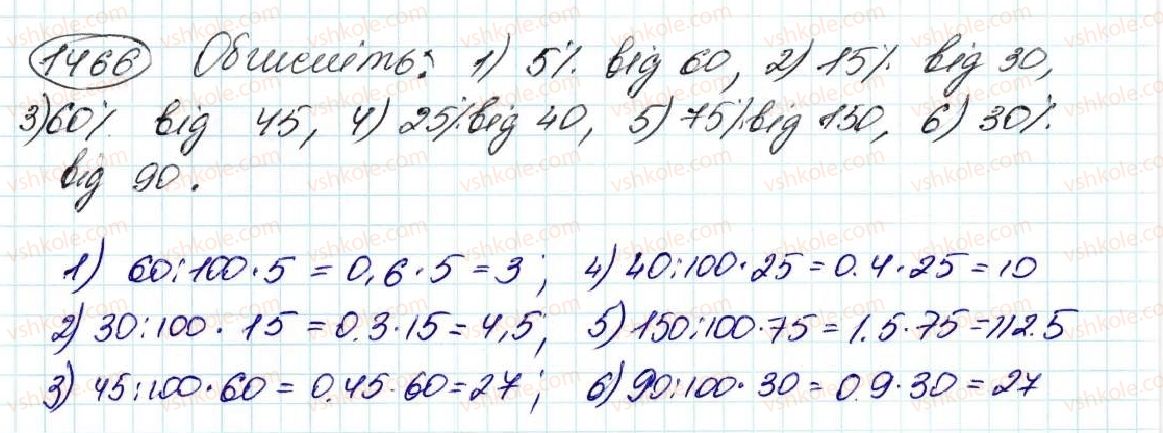 1466 Обчисліть: 1) 5% від 60, 2) 15% від 30,
3) 60% від 45, 4) 25% від 40, 5) 75% від 150, 6) 30%
від 90.
1) 60:100·5 = 0,6·5 = 3; 4) 40:100·25 = 0.4·25 = 10
2) 30:100·15 = 0.3·15 = 4,5; 5) 150:100·75 = 1.5·75 = 112.5
3) 45:100·60 = 0.45·60 = 27; 6) 90:100·30 = 0.9·30 = 27